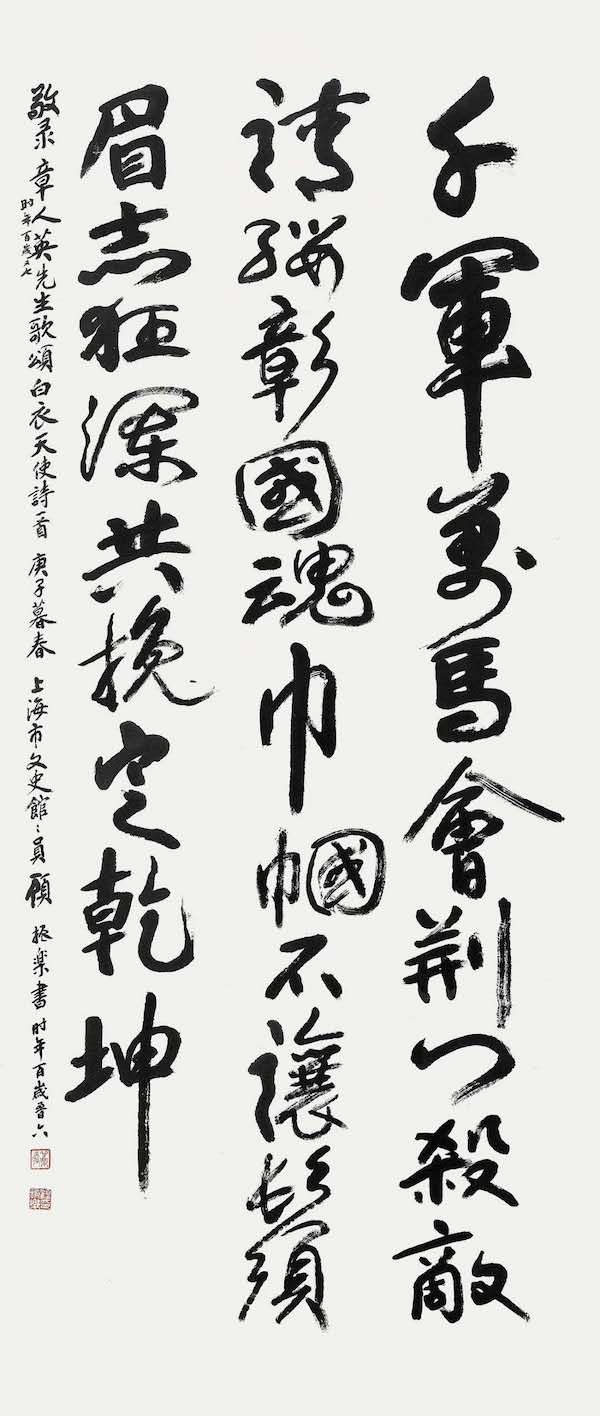 千軍萬馬會荆门殺敵
請纓彰國魂巾幗不讓鬚
眉志狂瀾共挽定乾坤
敬录章人英先生歌頌白衣天使詩一首 庚子暮春 上海市文史館々員顧振樂書时年百歲晋六
时年百歲又七